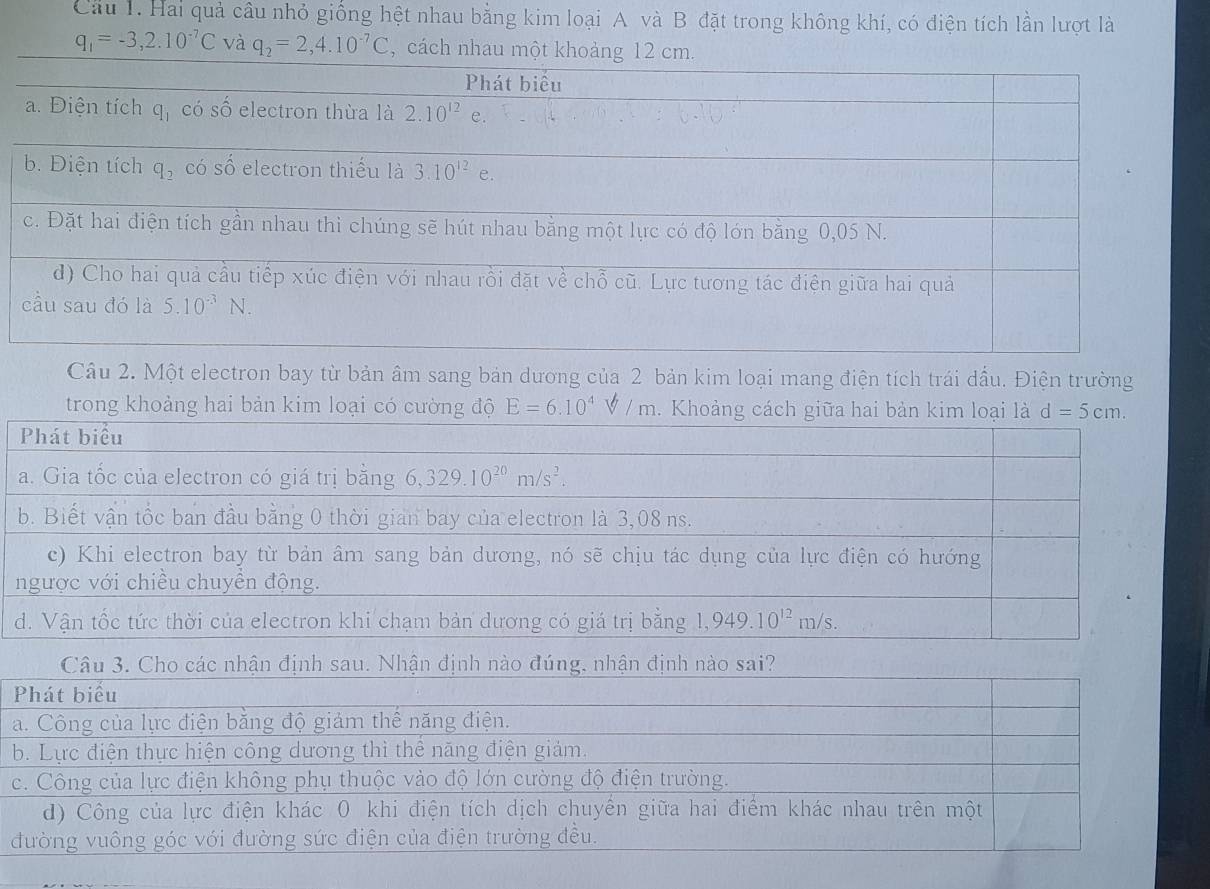 Câu 1. Hai quả cầu nhỏ giống hệt nhau bằng kim loại A và B đặt trong không khí, có điện tích lần lượt là
q₁ = -3,2.10⁻⁷C và q₂ = 2,4.10⁻⁷C, cách nhau một khoảng 12 cm.
Phát biểu
a. Điện tích q₁ có số electron thừa là 2.10¹² e.
b. Điện tích q₂ có số electron thiếu là 3.10¹² e.
c. Đặt hai điện tích gần nhau thì chúng sẽ hút nhau bằng một lực có độ lớn bằng 0,05 N.
d) Cho hai quả cầu tiếp xúc điện với nhau rồi đặt về chỗ cũ. Lực tương tác điện giữa hai quả
cầu sau đó là 5.10⁻³ N.
Câu 2. Một electron bay từ bản âm sang bản dương của 2 bản kim loại mang điện tích trái dấu. Điện trường
trong khoảng hai bản kim loại có cường độ E = 6.10⁴ V / m. Khoảng cách giữa hai bản kim loại là d = 5 cm.
Phát biểu
a. Gia tốc của electron có giá trị bằng 6,329.10²⁰ m/s².
b. Biết vận tốc ban đầu bằng 0 thời gian bay của electron là 3,08 ns.
c) Khi electron bay từ bản âm sang bản dương, nó sẽ chịu tác dụng của lực điện có hướng
ngược với chiều chuyển động.
d. Vận tốc tức thời của electron khi chạm bản dương có giá trị bằng 1,949.10¹² m/s.
Câu 3. Cho các nhận định sau. Nhận định nào đúng, nhận định nào sai?
Phát biểu
a. Công của lực điện bằng độ giảm thế năng điện.
b. Lực điện thực hiện công dương thì thế năng điện giảm.
c. Công của lực điện không phụ thuộc vào độ lớn cường độ điện trường.
d) Công của lực điện khác 0 khi điện tích dịch chuyển giữa hai điểm khác nhau trên một
đường vuông góc với đường sức điện của điện trường đều.